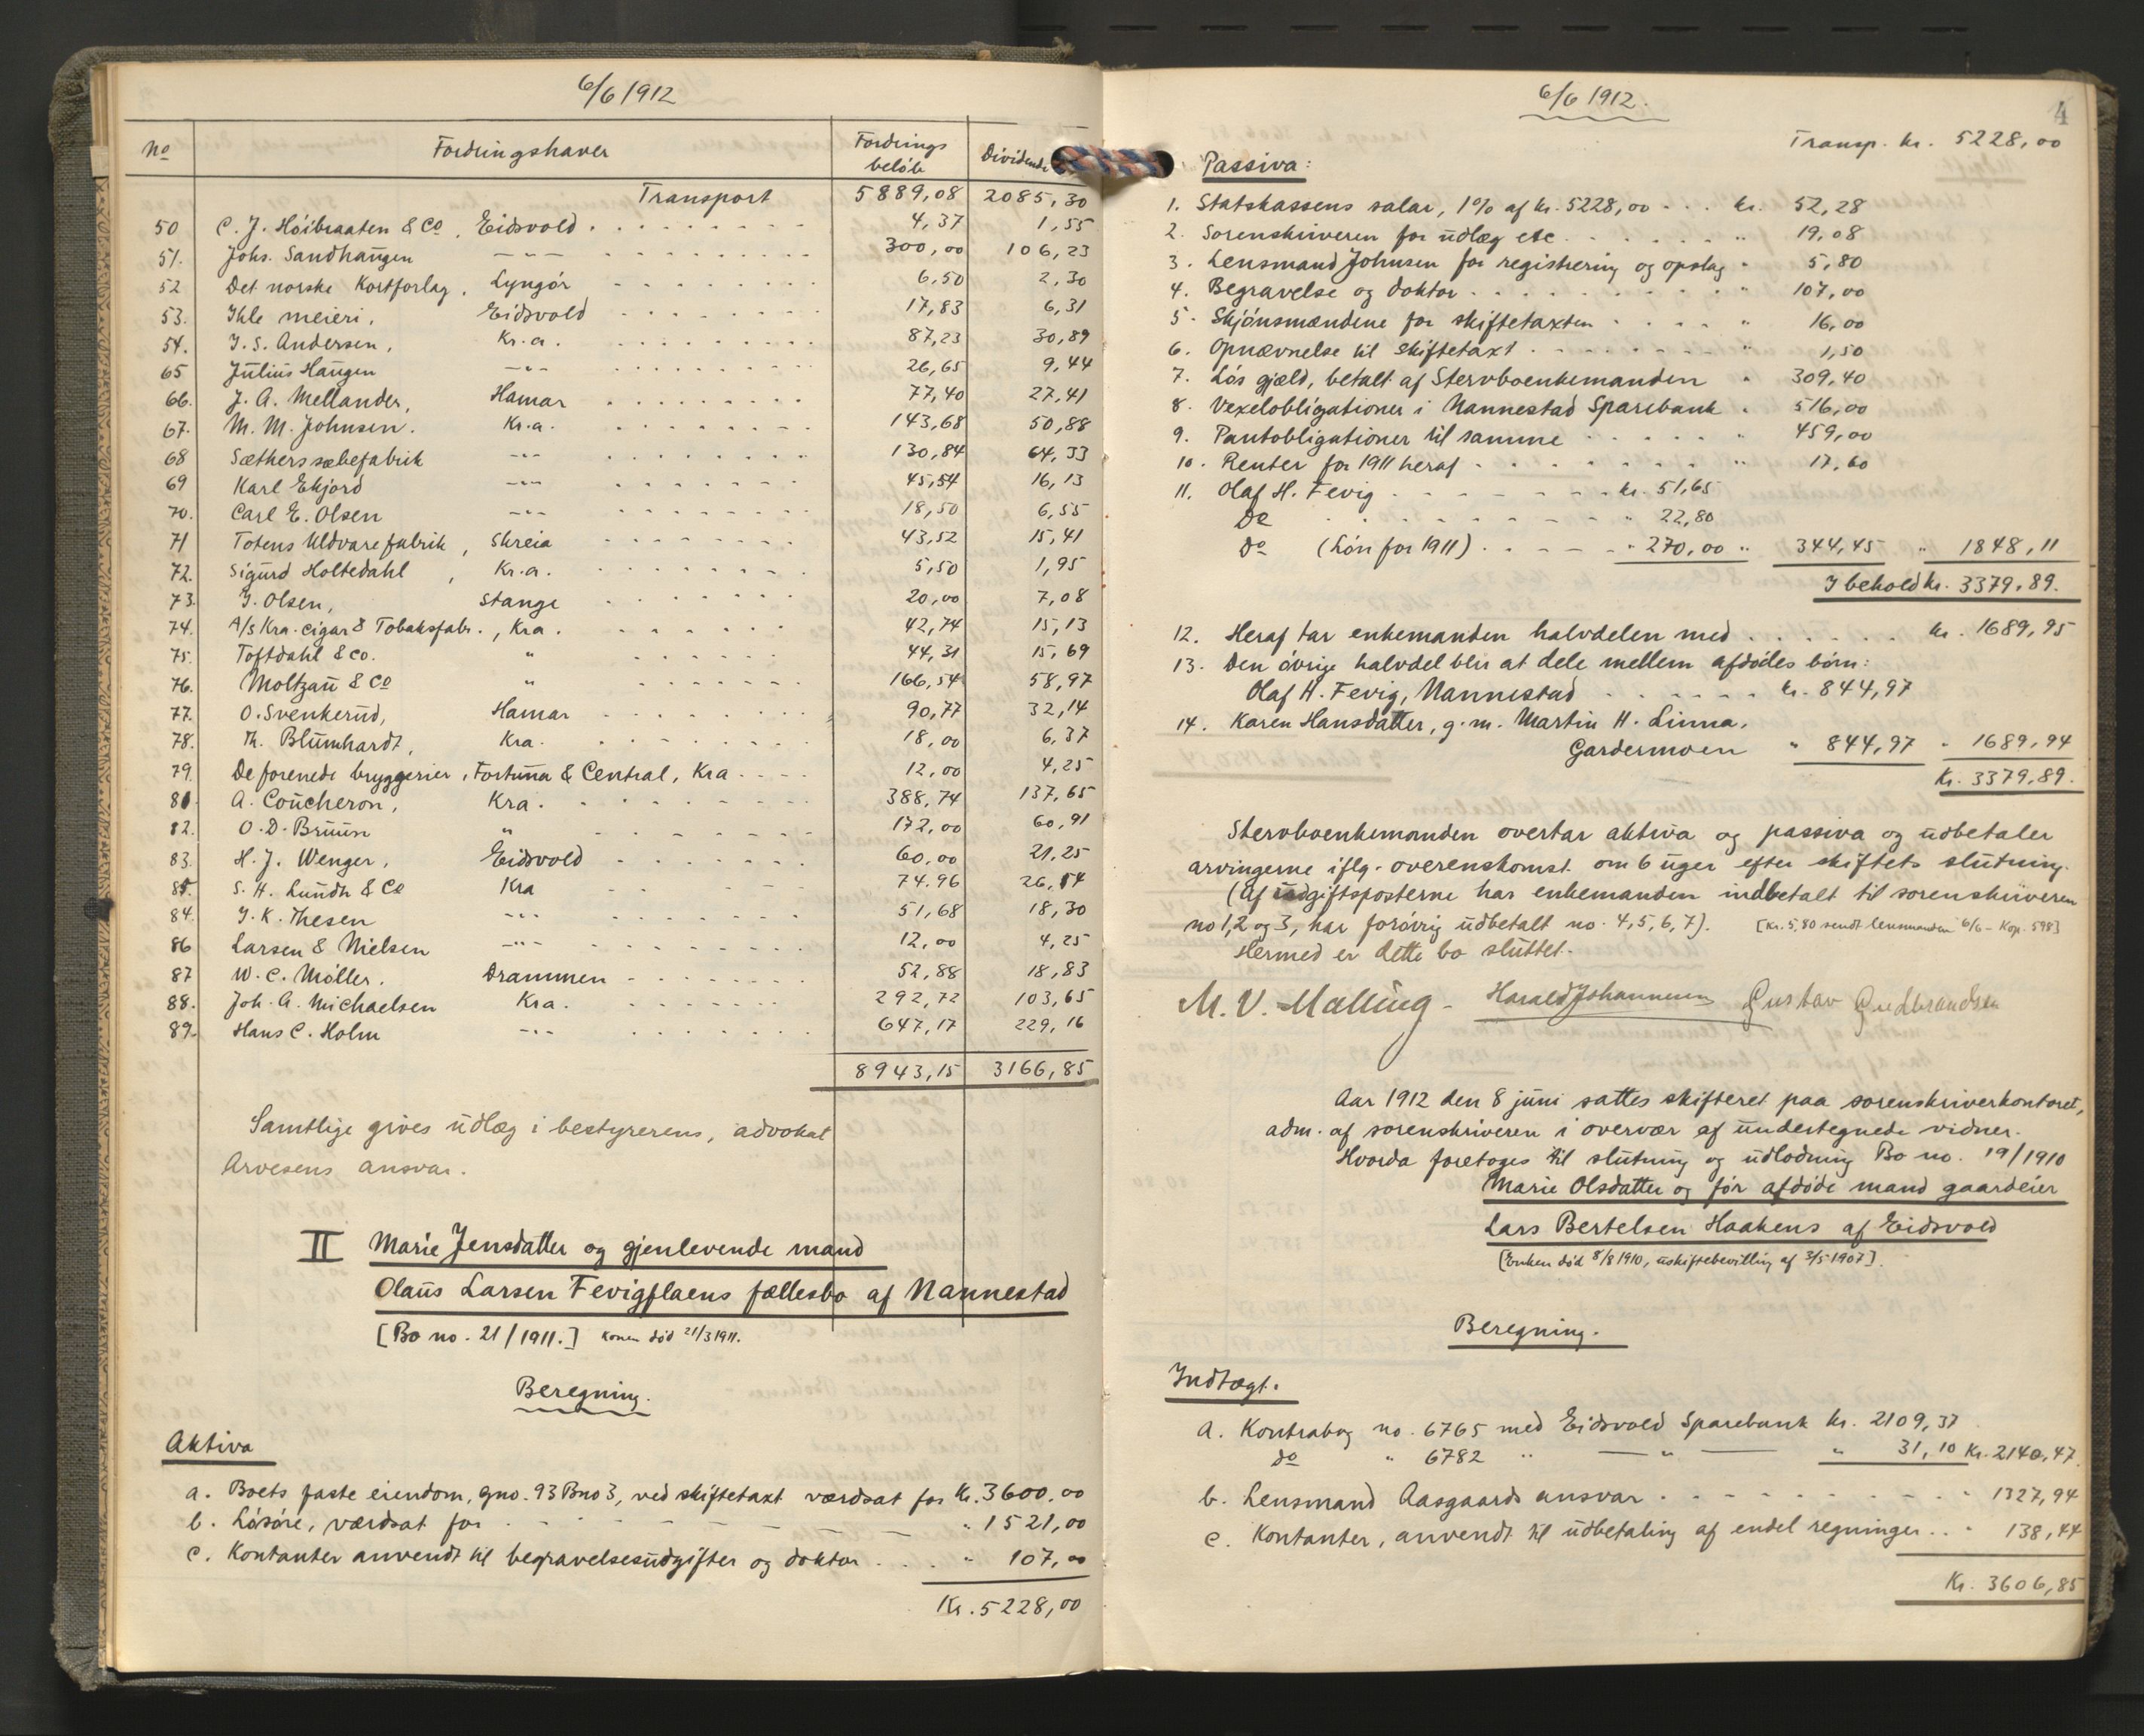 6/6 1912
No Fordringshaver Fordrings beløb Dividende
Transport 5889,08 2085,30
50 C. J. Høibraaten & Co, Eidsvold 4,37 1,55
51. Johs. Sandhaugen —"— 300,00 106,23
52 Det norske Kortforlag, Lyngør 6,50 2,30
53. Ihle meieri, Eidsvold 17,83 6,31
54. J. S. Andersen, Kr.a. 87,23 30,89
65 Julius Haugen —"— 26,65 9,44
66. J. A. Mellander, Hamar 77,40 27,41
67. M. M. Johnsen. Kr.a. 143,68 50,88
68 Sæthers sæbefabrik —"— 130,84 64,33
69 Karl Ekjord —"— 45,54 16,13
70. Carl E. Olsen —"— 18,50 6,55
71 Totens Uldvarefabrik, Skreia 43,52 15,41
72. Sigurd Holtedahl, Kr.a. 5,50 1,95
73. J. Olsen, Stange 20,00 7,08
74. A/S Kra. cigar & Tobaksfabr., Kra. 42,74 15,13
75. Toftdahl & Co. " 44,31 15,69
76. Moltzau & Co " 166,54 58,97
77. O. Svenkerud, Hamar 90,77 32,14
78. Th. Blumhardt, Kra. 18,00 6,37
79. De forenede bryggerier, Fortuna & Central, Kra. 12,00 4,25
81. A. Coucheron, Kra. 388,74 137,65
82. O. D. Bruun " 172,00 60,91
83. H. J. Wenger, Eidsvold 60,00 21,25
85. S. H. Lundh & Co Kra 74.96 26,54
84. J. K. Thesen —"— 51,68 18,30
86 Larsen & Nielsen —"— 12,00 4,25
87 W. C. Møller. Drammen 52,88 18,83
88. Joh. A. Michaelsen Kra. 292,72 103,65
89. Hans C. Holm —"— 647,17 229,16
8943,15 3166,85
Samtlige gives udlæg i bestyrerens, advokat
Arvesens ansvar.
II Marie Jensdatter og gjenlevende mand
Olaus Larsen Fevigflaens fællesbo af Nannestad
[Bo no. 21/1911.] Konen død 21/3 1911.
Beregning.
Aktiva
a. Boets faste eiendom, gno. 93 Bno 3, ved skiftetaxt værdsat for Kr. 3600,00
b. Løsøre, værdsat for " 1521,00
c. Kontanter anvendt til begravelsesudgifter og doktor " 107,00
Kr. 5228,00
6/6 1912.
4
Transp. kr. 5228,00
Passiva:
1. Statskassens salar, 1% af kr. 5228,00 kr. 52,28
2. Sorenskriveren for udlæg etc " 19,08
3. Lensmand Johnsen for registrering og opslag " 5,80
4. Begravelse og doktor " 107,00
5. Skjønsmændene for skiftetaxten " 16,00
6. Opnævnelse til skiftetaxt " 1,50
7. Løs gjæld, betalt af Stervboenkemanden " 309,40
8. Vexelobligationer i Nannestad Sparebank " 516,00
9. Pantobligationer til samme " 459,00
10. Renter for 1911 heraf " 17,60
11. Olaf H. Fevig kr. 51,65
Do " 22,80
Do (Løn for 1911) " 270,00 " 344,45 " 1848,11
I behold kr. 3379,89.
12. Heraf tar enkemanden halvdelen med kr. 1689,95
13. Den øvrige halvdel blir at dele mellem afdødes børn:
Olaf H. Fevig, Nannestad kr. 844,97
14. Karen Hansdatter, g. m. Martin H. Linna,
Gardermoen " 844,97 " 1689,94
Kr. 3379,89.
Stervboenkemanden overtar aktiva og passiva og udbetaler
arvingerne iflg. overenskomst om 6 uger efter skiftets slutning.
(Af udgiftsposterne har enkemanden indbetalt til sorenskriveren
no 1, 2 og 3, har forøvrig udbetalt no. 4, 5, 6, 7). [Kr. 5,80 sendt lensmanden 6/6 - Kop. 598]
Hermed er dette bo sluttet.
M. V. Malling - Harald Johannesen Gustav Gudbrandsen
Aar 1912 den 8 juni sattes skifteret paa sorenskriverkontoret,
adm. af sorenskriveren i overvær af undertegnede vidner.
Hvorda foretoges til slutning og udlodning Bo no. 19/1910
Marie Olsdatter og før afdøde mand gaardeier
Lars Bertelsen Haakens af Eidsvold
[Enken død 8/8 1910, uskiftebevilling af 3/5 1907].
Beregning.
Indtægt.
a. Kontrabog no. 6765 med Eidsvold Sparebank kr. 2109,37
do " 6782 " — " — " 31,10 Kr. 2140,47.
b. Lensmand Aasgaards ansvar " 1327,94
c. Kontanter, anvendt til udbetaling af endel regninger " 138,44
Kr. 3606,85